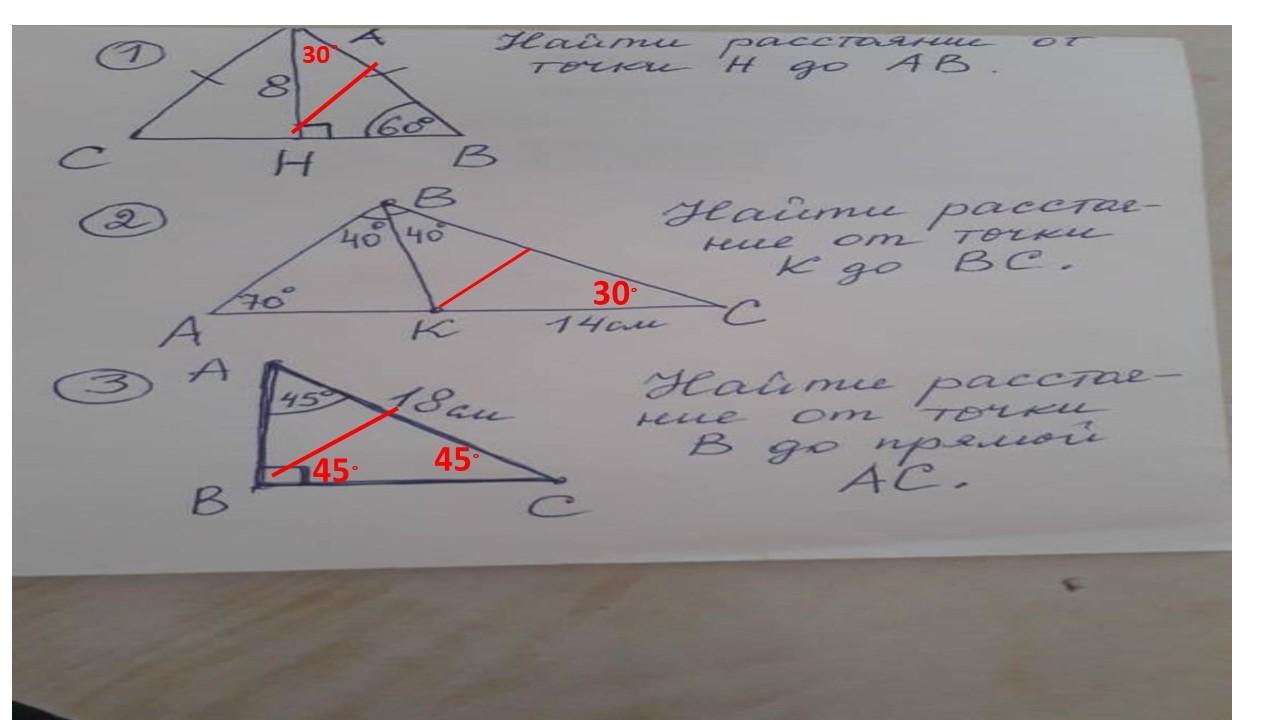 1 A Найти расстаяние от
30° точки H до AB.
8
60°
C H B
2 B Найти расстая-
40° 40° ние от точки
K до BC.
70° 30°
A K 14см C
3 A Найти расстая-
45° 18см ние от точки
B до прямой
45° 45° AC.
B C